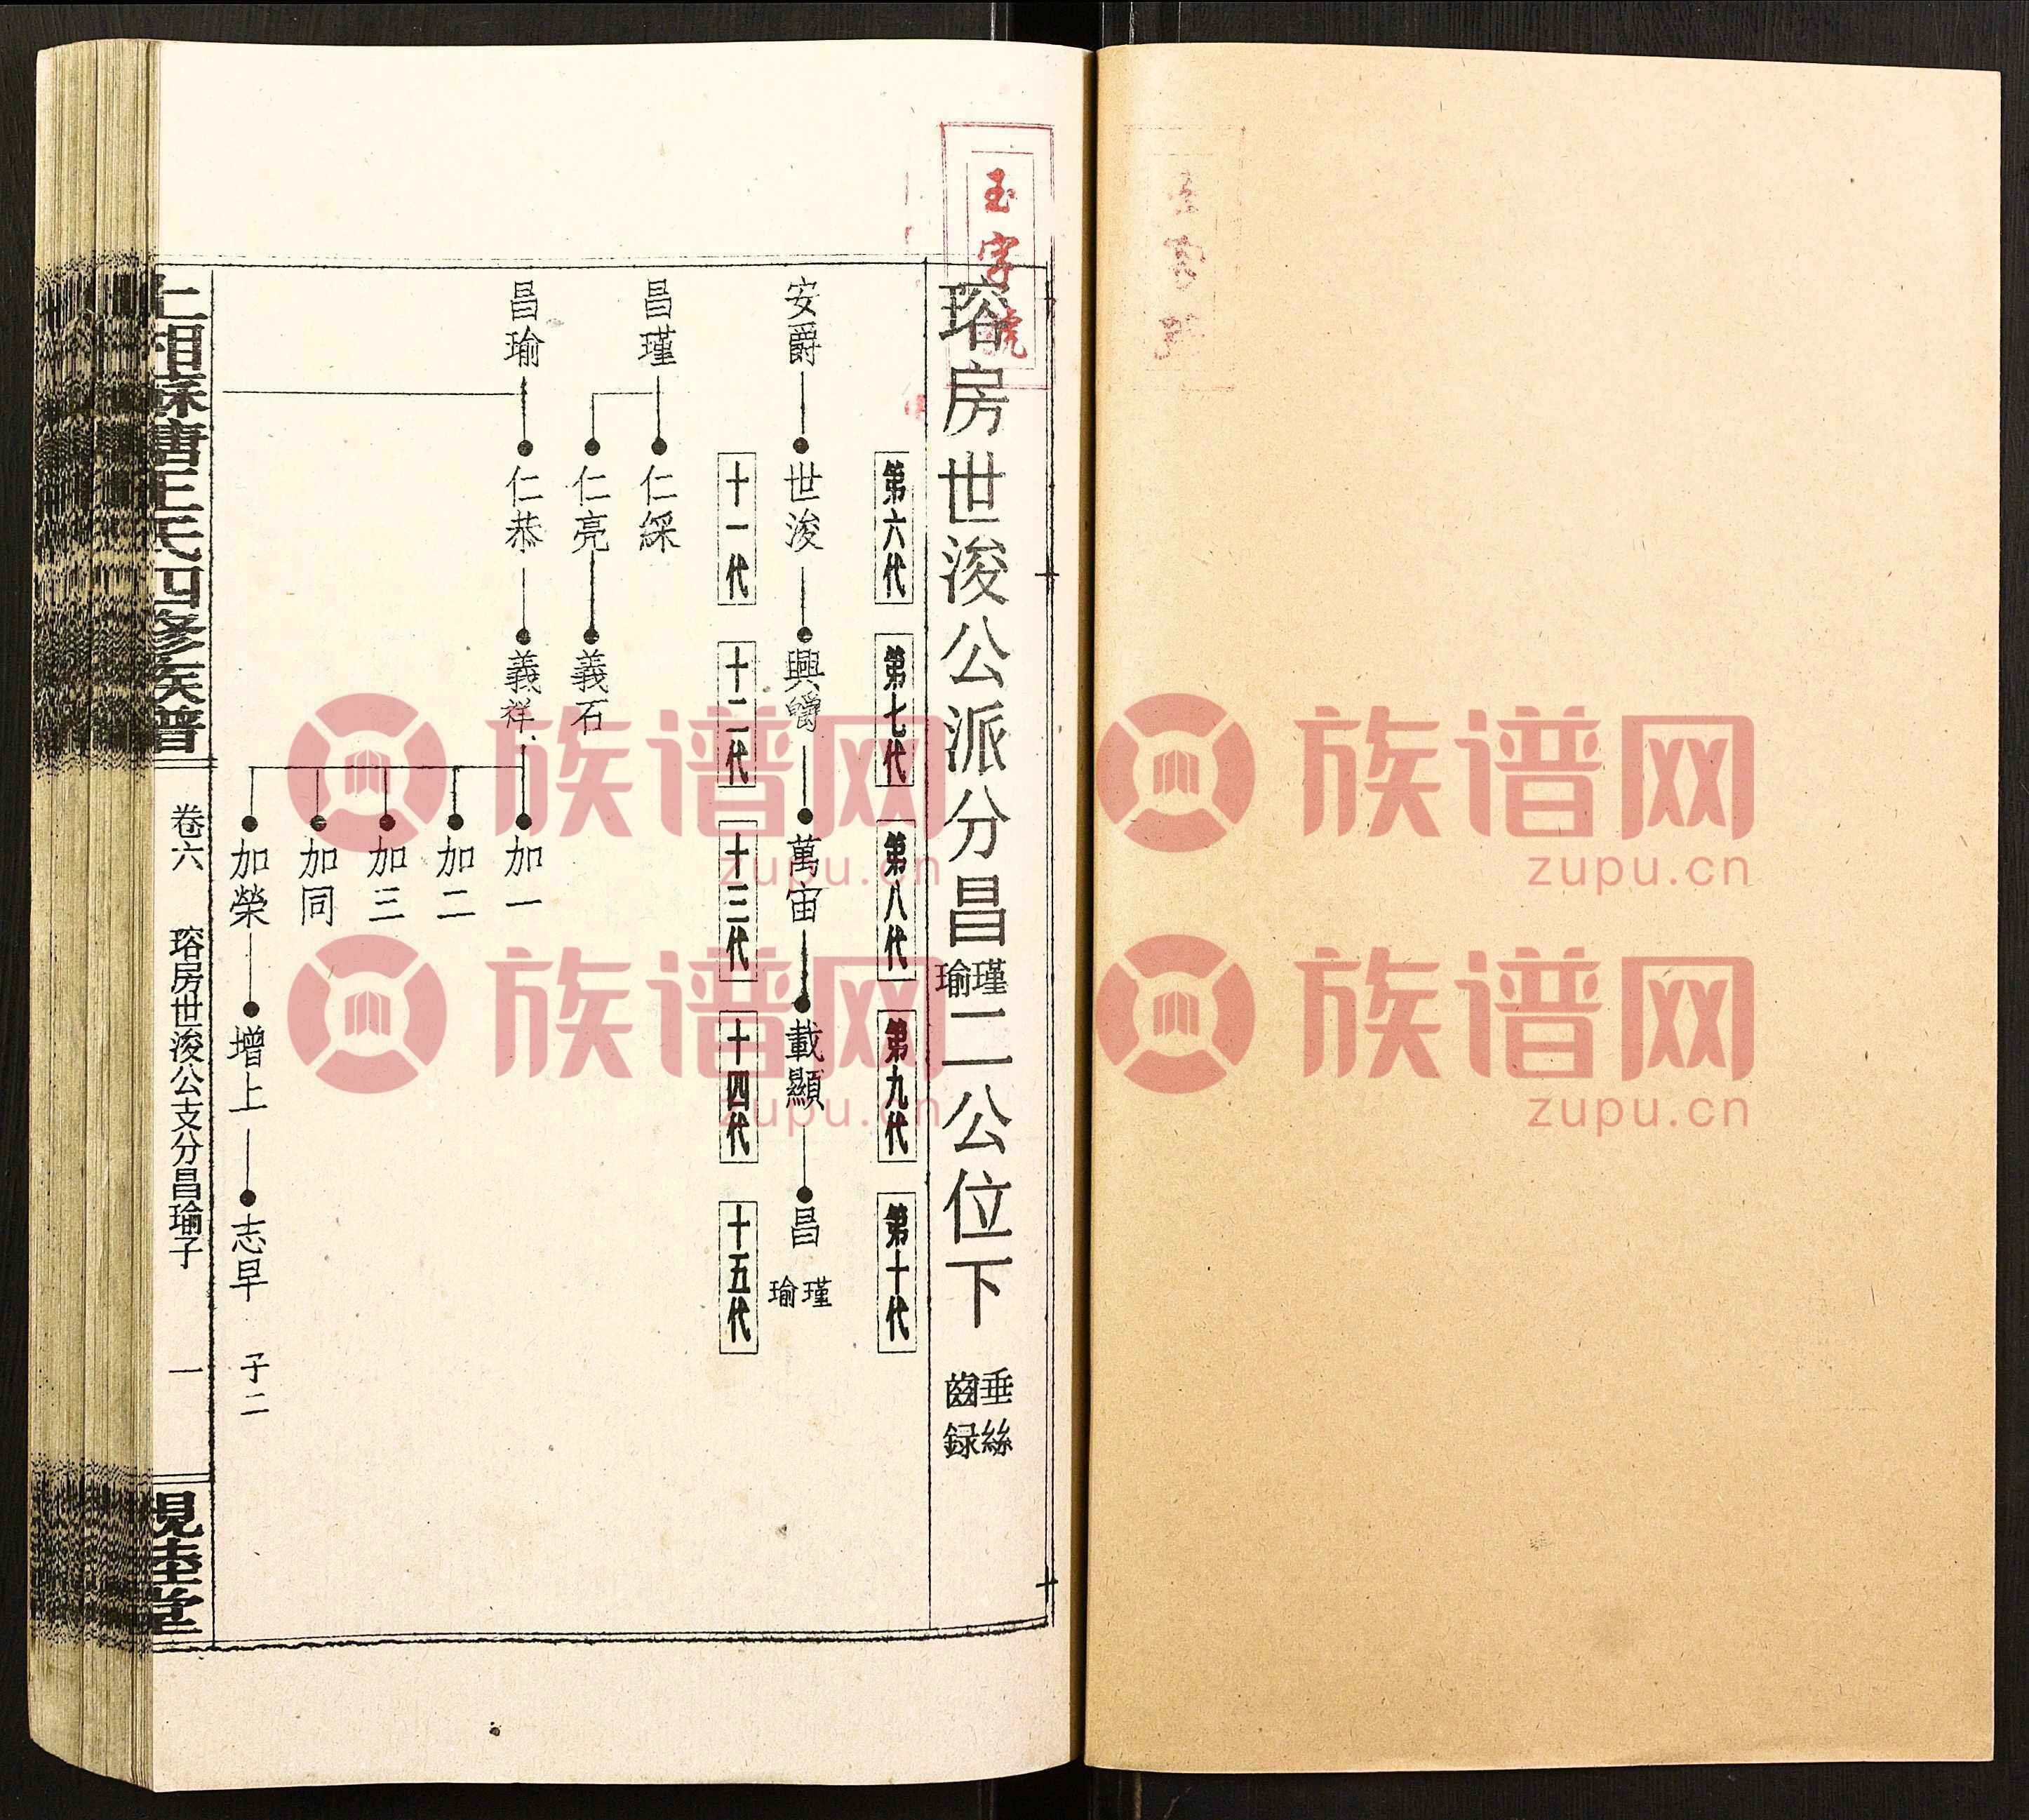 玉字號
瑢房世浚公派分昌瑾瑜二公位下 垂絲齒録
第六代 第七代 第八代 第九代 第十代
安爵 世浚 興 萬宙 載顯 昌瑾瑜
十一代 十二代 十三代 十四代 十五代
昌瑾 仁綵
仁亮 義石
昌瑜 仁恭 義祥 加一
加二
加三
加同
加榮 增上 志早 子二
上湘 塘王氏四修族譜 卷六 瑢房世浚公支分昌瑜子 一 視 堂
族谱网
zupu.cn
族谱网
zupu.cn
族谱网
zupu.cn
族谱网
zupu.cn